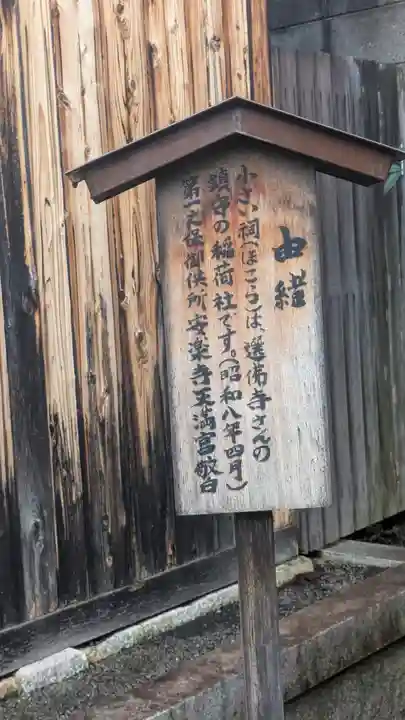 由緒
小さい祠(ほこら)は、選佛寺さんの
鎮守の稲荷社です。(昭和八年四月)
第一之保御供所 安楽寺天満宮敬白